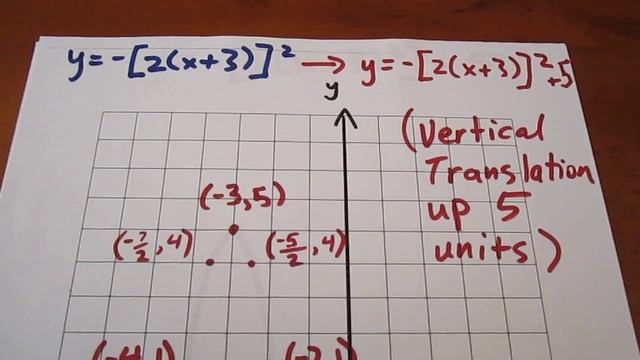 y=-[2(x+3)]² → y=-[2(x+3)]²+5
y
(Vertical
Translation
up 5
units)
(-3,5)
(-7/2,4) (-5/2,4)